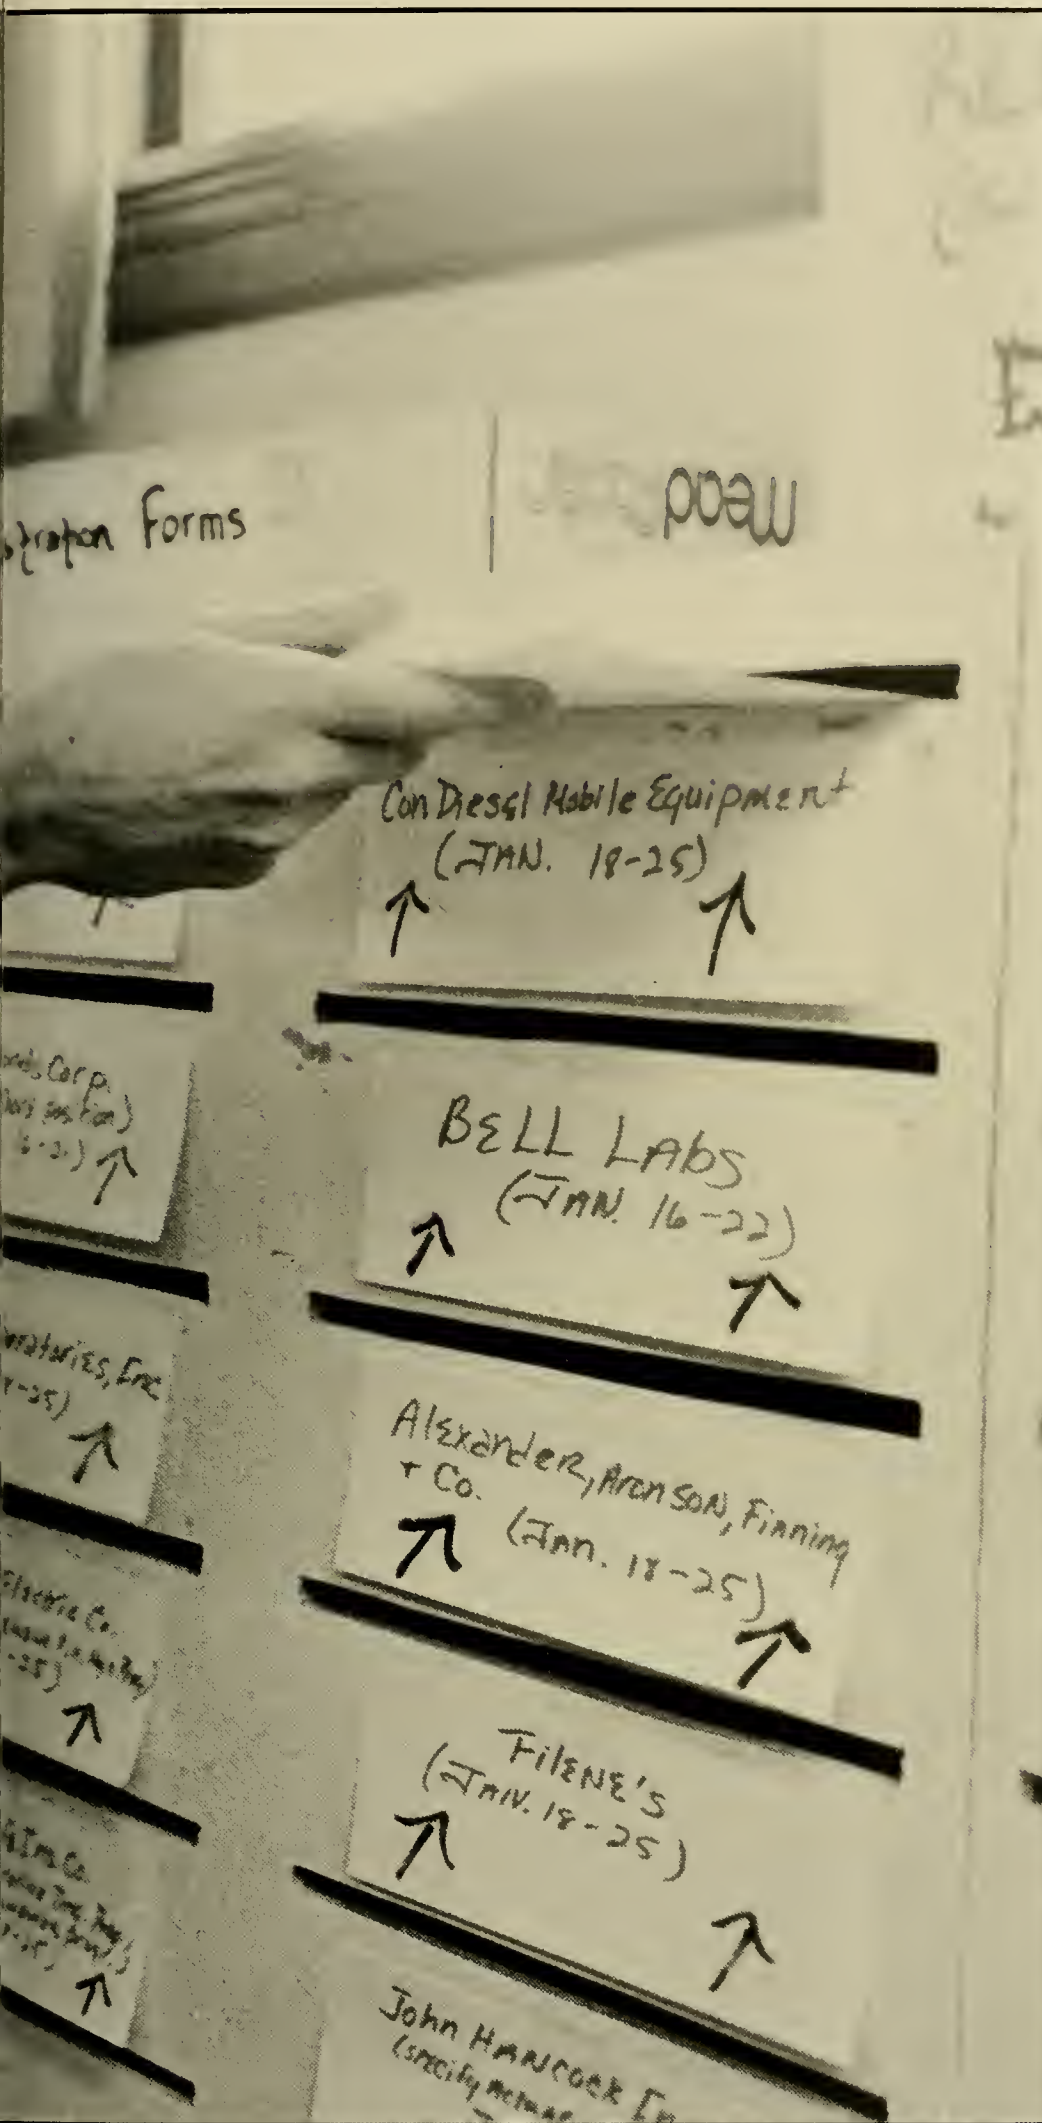 Forms
Mead
Con Diesel Mobile Equipment
(JAN. 18-25)
BELL LAbs
(JAN. 16-22)
AlexandeR, AronSON, Finning
+ Co. (JAn. 18-25)
FilENE's
(JAN. 18-25)
John HANcock
(specify
Corp.
Inc
8-25)
Electric Co.
-25)
Co.